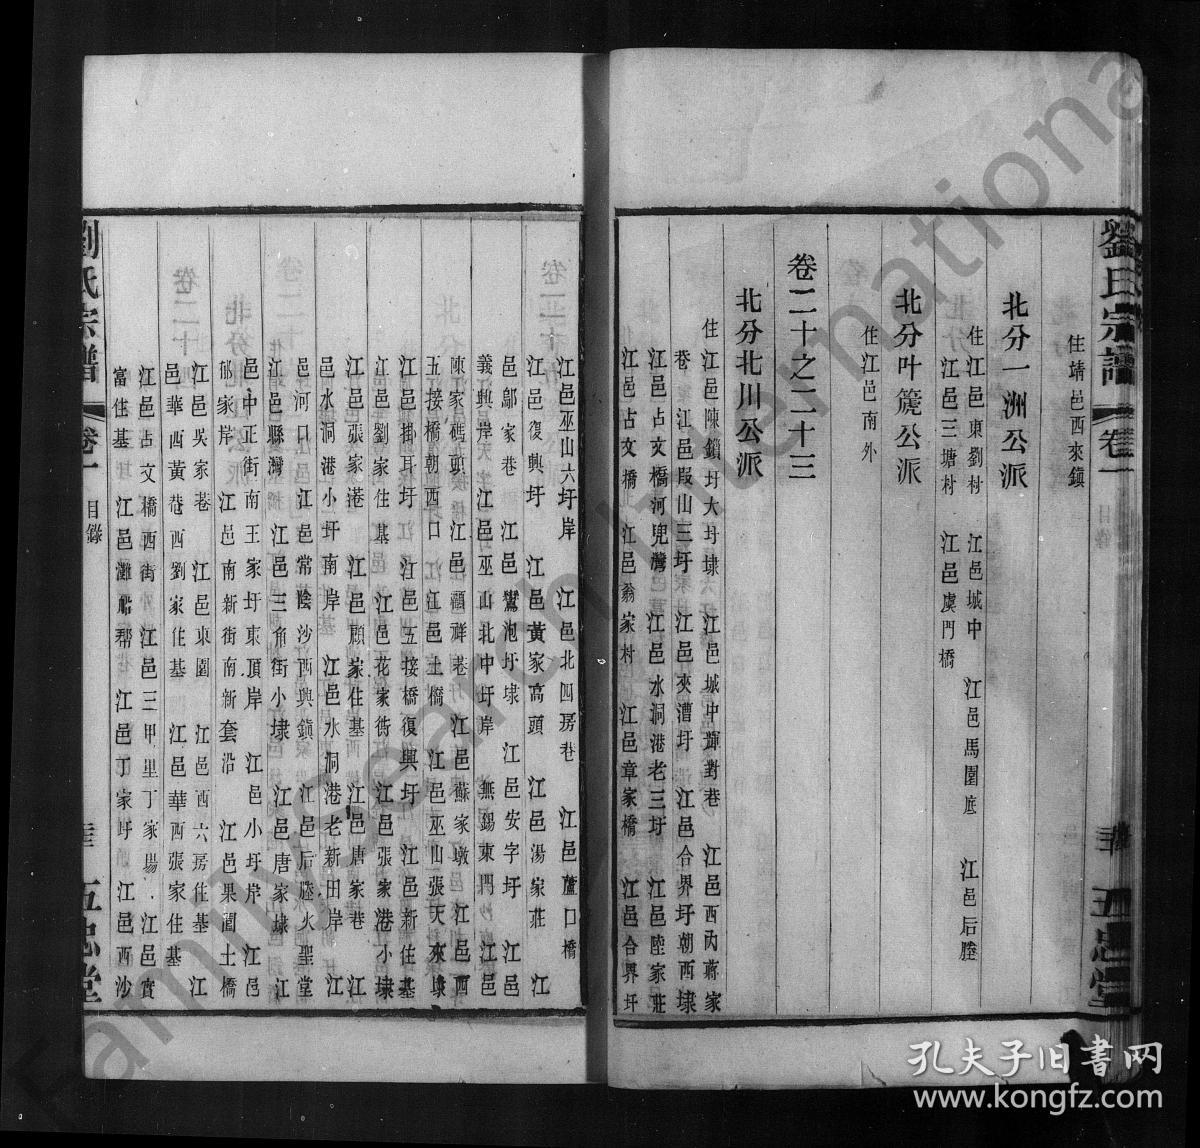 劉氏宗譜 卷一 目錄 五忠堂
住靖邑西來鎮
北分一洲公派
住江邑東劉村 江邑城中 江邑馬圍底 江邑后塍
江邑三塘村 江邑虞門橋
北分叶篪公派
住江邑南外
卷二十之二十三
北分北川公派
住江邑陳鎖圩大圩埭 江邑城中輝對巷 江邑西內蔣家
巷 江邑叚山三圩 江邑夾漕圩 江邑合界圩朝西埭
江邑占文橋河兜灣 江邑水洞港老三圩 江邑陸家莊
江邑占文橋 江邑翁家村 江邑章家橋 江邑合界圩
江邑巫山六圩岸 江邑北四房巷 江邑蘆口橋
江邑復興圩 江邑黃家高頭 江邑湯家莊 江
邑鄔家巷 江邑鴛泡圩埭 江邑安字圩 江邑
義興岸 江邑巫山北中圩岸 無錫東門 江邑
陳家碼頭 江邑顧祥巷 江邑蘇家墩 江邑西
五接橋朝西口 江邑土橋 江邑巫山張天來埭
江邑掛耳圩 江邑五接橋復興圩 江邑新住基
江邑劉家住基 江邑花家衖 江邑張家港小埭
江邑張家港 江邑顧家住基 江邑唐家巷 江
邑水洞港小圩南岸 江邑水洞港老新田岸 江
邑河口 江邑常陰沙西興鎮 江邑后塍火聖堂
江邑縣灣 江邑三角街小埭 江邑唐家埭 江
邑中正街南王家圩東頂岸 江邑小圩岸 江邑
郁家岸 江邑南新街南新套沿 江邑果園土橋
江邑吳家巷 江邑東園 江邑西六房住基 江
邑華西黃巷西劉家住基 江邑華西張家住基
江邑占文橋西街 江邑三甲里丁家場 江邑實
富住基 江邑灘船幫 江邑丁家圩 江邑西沙
劉氏宗譜 卷一 目錄 五忠堂
孔夫子旧書网
www.kongfz.com
FamilySearch International